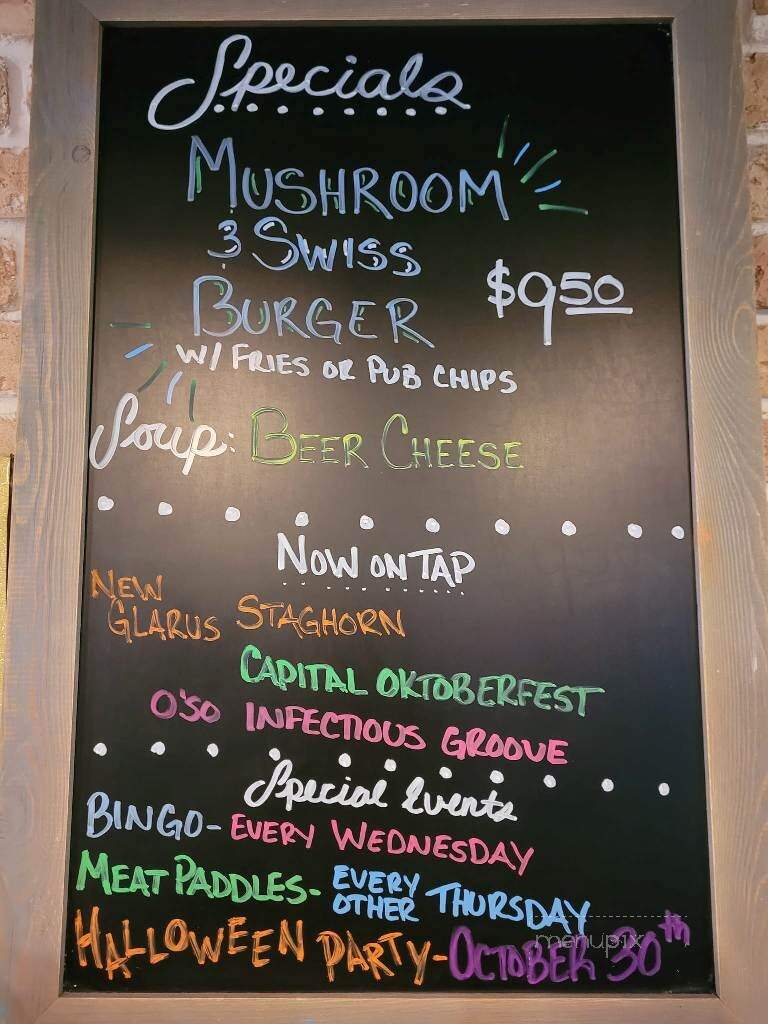 Specials
MUSHROOM
& SWISS
BURGER $9.50
W/ FRIES OR PUB CHIPS
Soup: BEER CHEESE
NOW ON TAP
NEW
GLARUS STAGHORN
CAPITAL OKTOBERFEST
O'SO INFECTIOUS GROOVE
Special Events
BINGO- EVERY WEDNESDAY
MEAT PADDLES- EVERY OTHER THURSDAY
HALLOWEEN PARTY- OCTOBER 30th
menupix